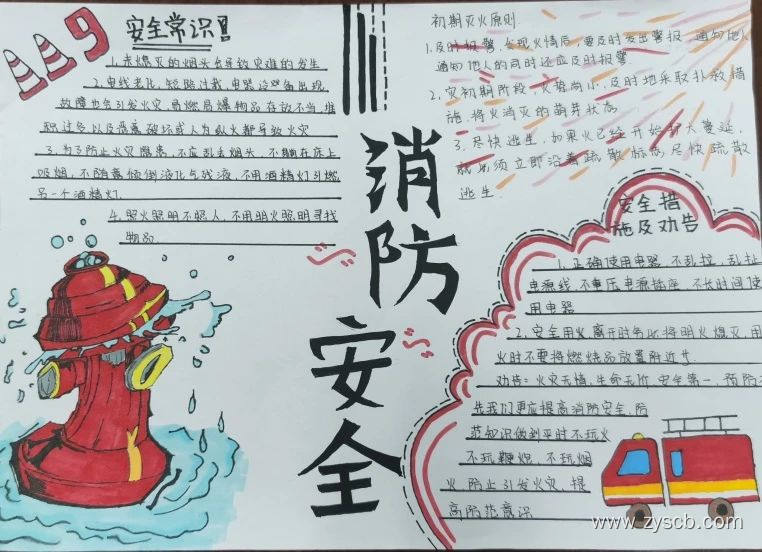 119
安全常识!
1.未熄灭的烟头会导致灾难的发生
2.电线老化,短路过载,电器设备出现
故障也会引发火灾,易燃易爆物品存放不当,堆
积过多以及恶意破坏或人为纵火都导致火灾
3.为了防止火灾隐患,不应乱丢烟头,不躺在床上
吸烟,不随意倾倒液化气残液,不用酒精灯引燃
另一个酒精灯.
4.照火照明不照人,不用明火照明寻找
物品.
消防安全
初期灭火原则.
1.及时报警,发现火情后,要及时发出警报,通知他人
通知他人的同时还应及时报警.
2.灾初期阶段,火势尚小,及时地采取扑救措
施,将火消灭的萌芽状态
3.尽快逃生,如果火已经开始扩大蔓延,
就必须立即沿着疏散标志尽快疏散
逃生.
安全措
施及劝告
1.正确使用电器,不乱拉,乱扯
电源线,不重压电源插座,不长时间使
用电器
2.安全用火,离开时务必将明火熄灭,用
火时不要将燃烧品放置附近
劝告:火灾无情,生命无价,安全第一,预防
先我们更应提高消防安全,防
范知识做到平时不玩火
不玩鞭炮,不玩烟
火,防止引发火灾,提
高防范意识
www.zyscb.com